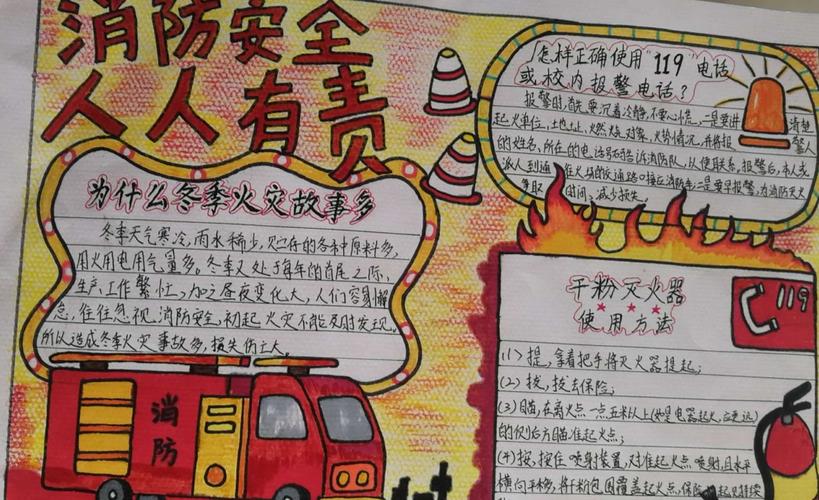 消防安全
人人有责
怎样正确使用“119”电话
或校内报警电话？
报警时，首要沉着冷静，不要心慌，一是要讲清楚
起火单位，土地址，燃烧对象，火势情况，并将报警人
的姓名，所在的电话号码告诉消防队，以便联系，报警后，本人或
派人到通往火场的交通路口接应消防车；二是要早报警，为消防灭火
争取时间，减少损失。
为什么冬季火灾故事多
冬季天气寒冷，雨水稀少，贮存的各种原料多，
用火用电用气量多。冬季又处于每年的首尾之际，
生产，工作繁忙，加之昼夜变化大，人们容易懈
怠，往往忽视消防安全，初起火灾不能及时发现，
所以造成冬季火灾事故多，损失伤亡大。
消
防
干粉灭火器
使用方法
119
(1)提，拿着把手将灭火器提起；
(2)拔，拔去保险；
(3)瞄，在离火点一点五米以上(如是电器起火，应更远)
的侧后方瞄准起火点；
(4)按，按住喷射装置，对准起火点喷射，且水平
横向移动，将干粉包围覆盖起火点，保险起见持续